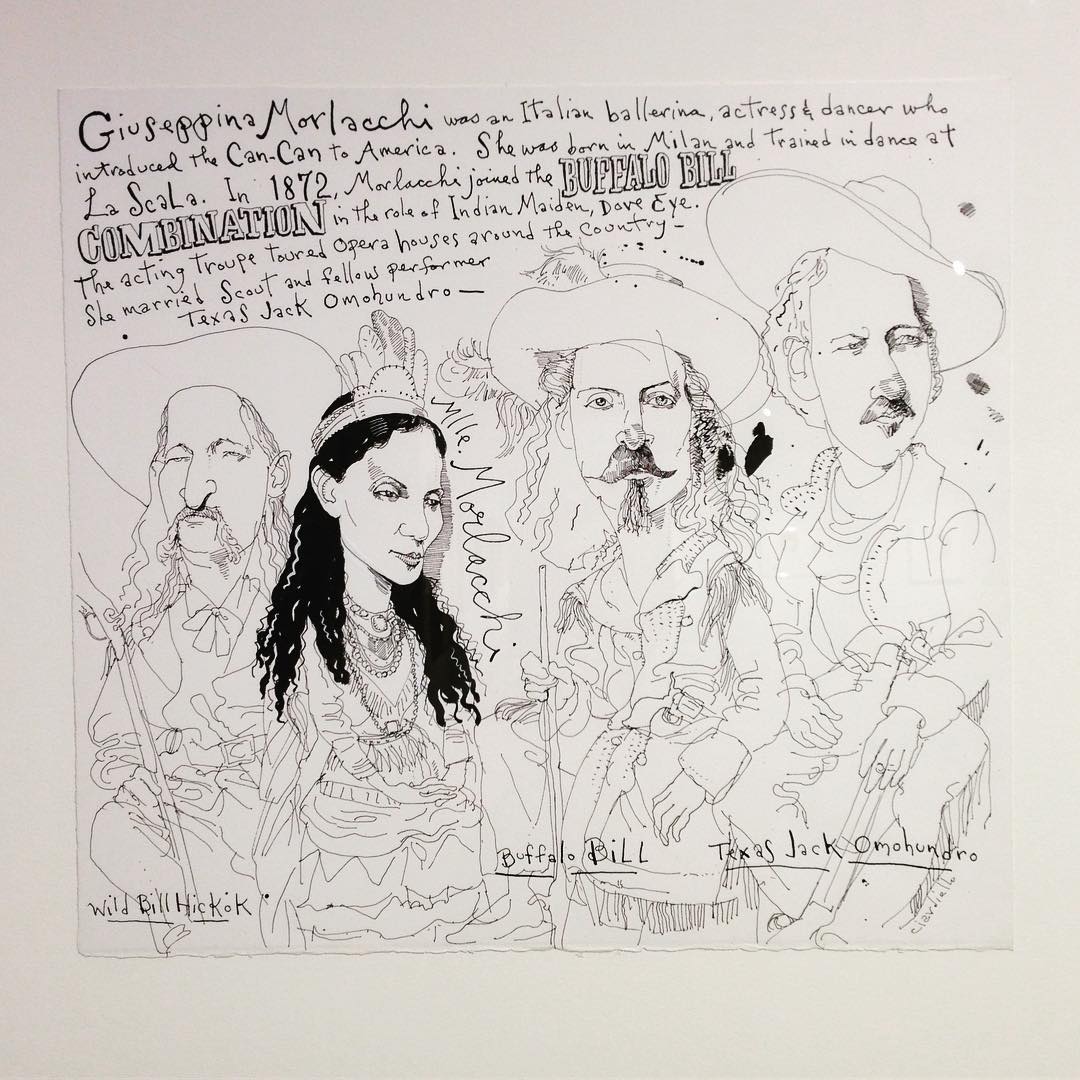 Giuseppina Morlacchi was an Italian ballerina, actress & dancer who
introduced the Can-Can to America. She was born in Milan and Trained in dance at
La Scala. In 1872, Morlacchi joined the BUFFALO BILL
COMBINATION in the role of Indian Maiden, Dove Eye.
The acting Troupe toured Opera houses around the country—
She married Scout and fellow performer
Texas Jack Omohundro—
Mlle. Morlacchi
Buffalo Bill
Texas Jack Omohundro
Wild Bill Hickok